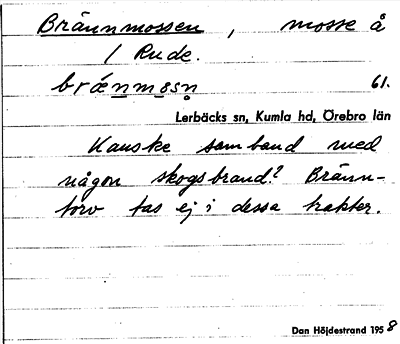 Brännmossen, mosse å
1 Rude.
brǽnmɷsn̥ 61.
Lerbäcks sn, Kumla hd, Örebro län
Kanske samband med
någon skogsbrand? Bränn-
torv tas ej i dessa trakter.
Dan Höjdestrand 1958